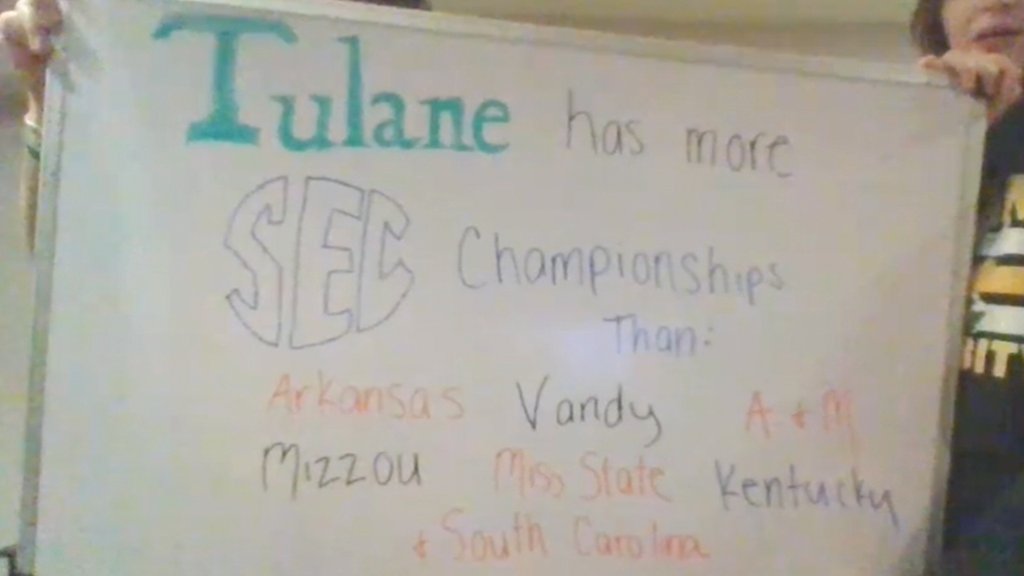 Tulane has more
SEC Championships
Than:
Arkansas Vandy A + M
Mizzou Miss State Kentucky
+ South Carolina